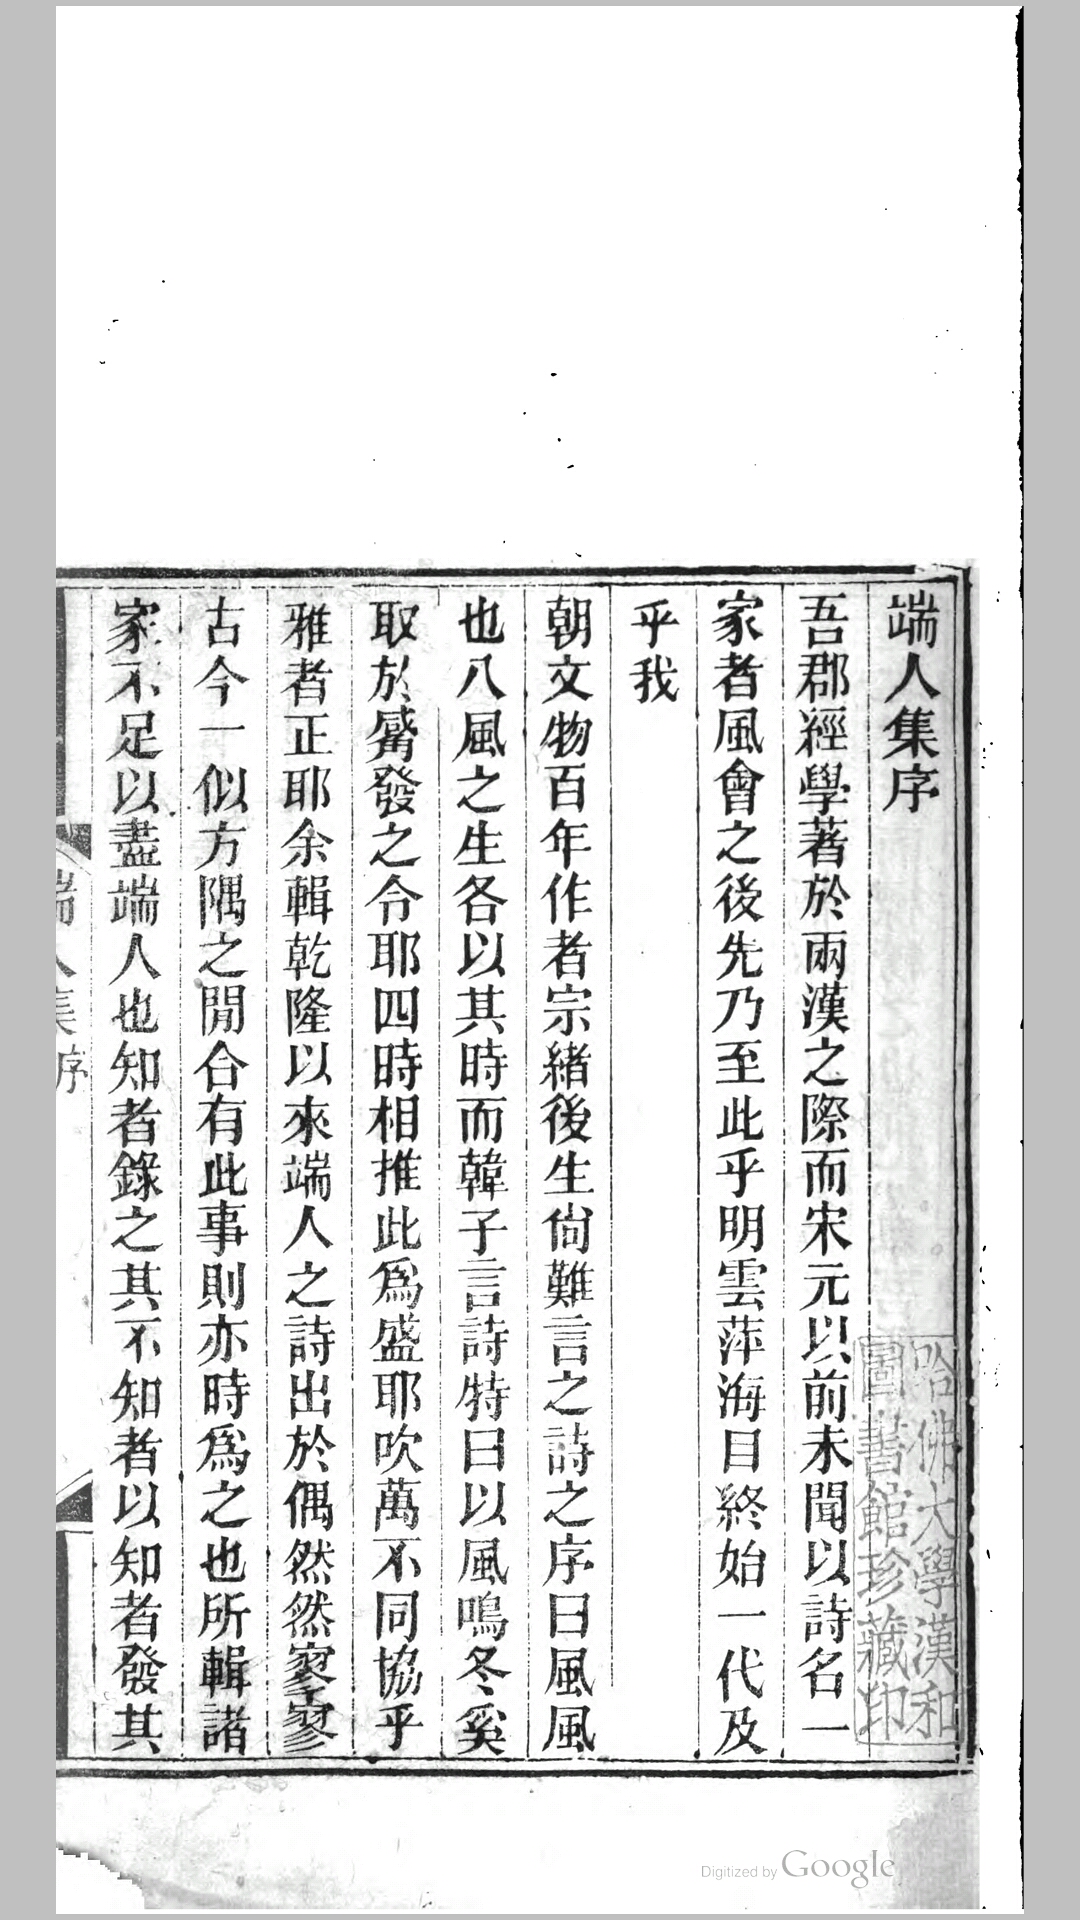 端人集序
吾郡經學著於兩漢之際而宋元以前未聞以詩名一
家者風會之後先乃至此乎明雲萍海目終始一代及
乎我
朝文物百年作者宗緒後生尙難言之詩之序曰風風
也八風之生各以其時而韓子言詩特曰以風鳴冬奚
取於觱發之令耶四時相推此爲盛耶吹萬不同協乎
雅者正耶余輯乾隆以來端人之詩出於偶然然寥寥
古今一似方隅之閒合有此事則亦時爲之也所輯諸
家不足以盡端人也知者錄之其不知者以知者發其
端人集序
哈佛大學漢和
圖書館珍藏印
Digitized by Google